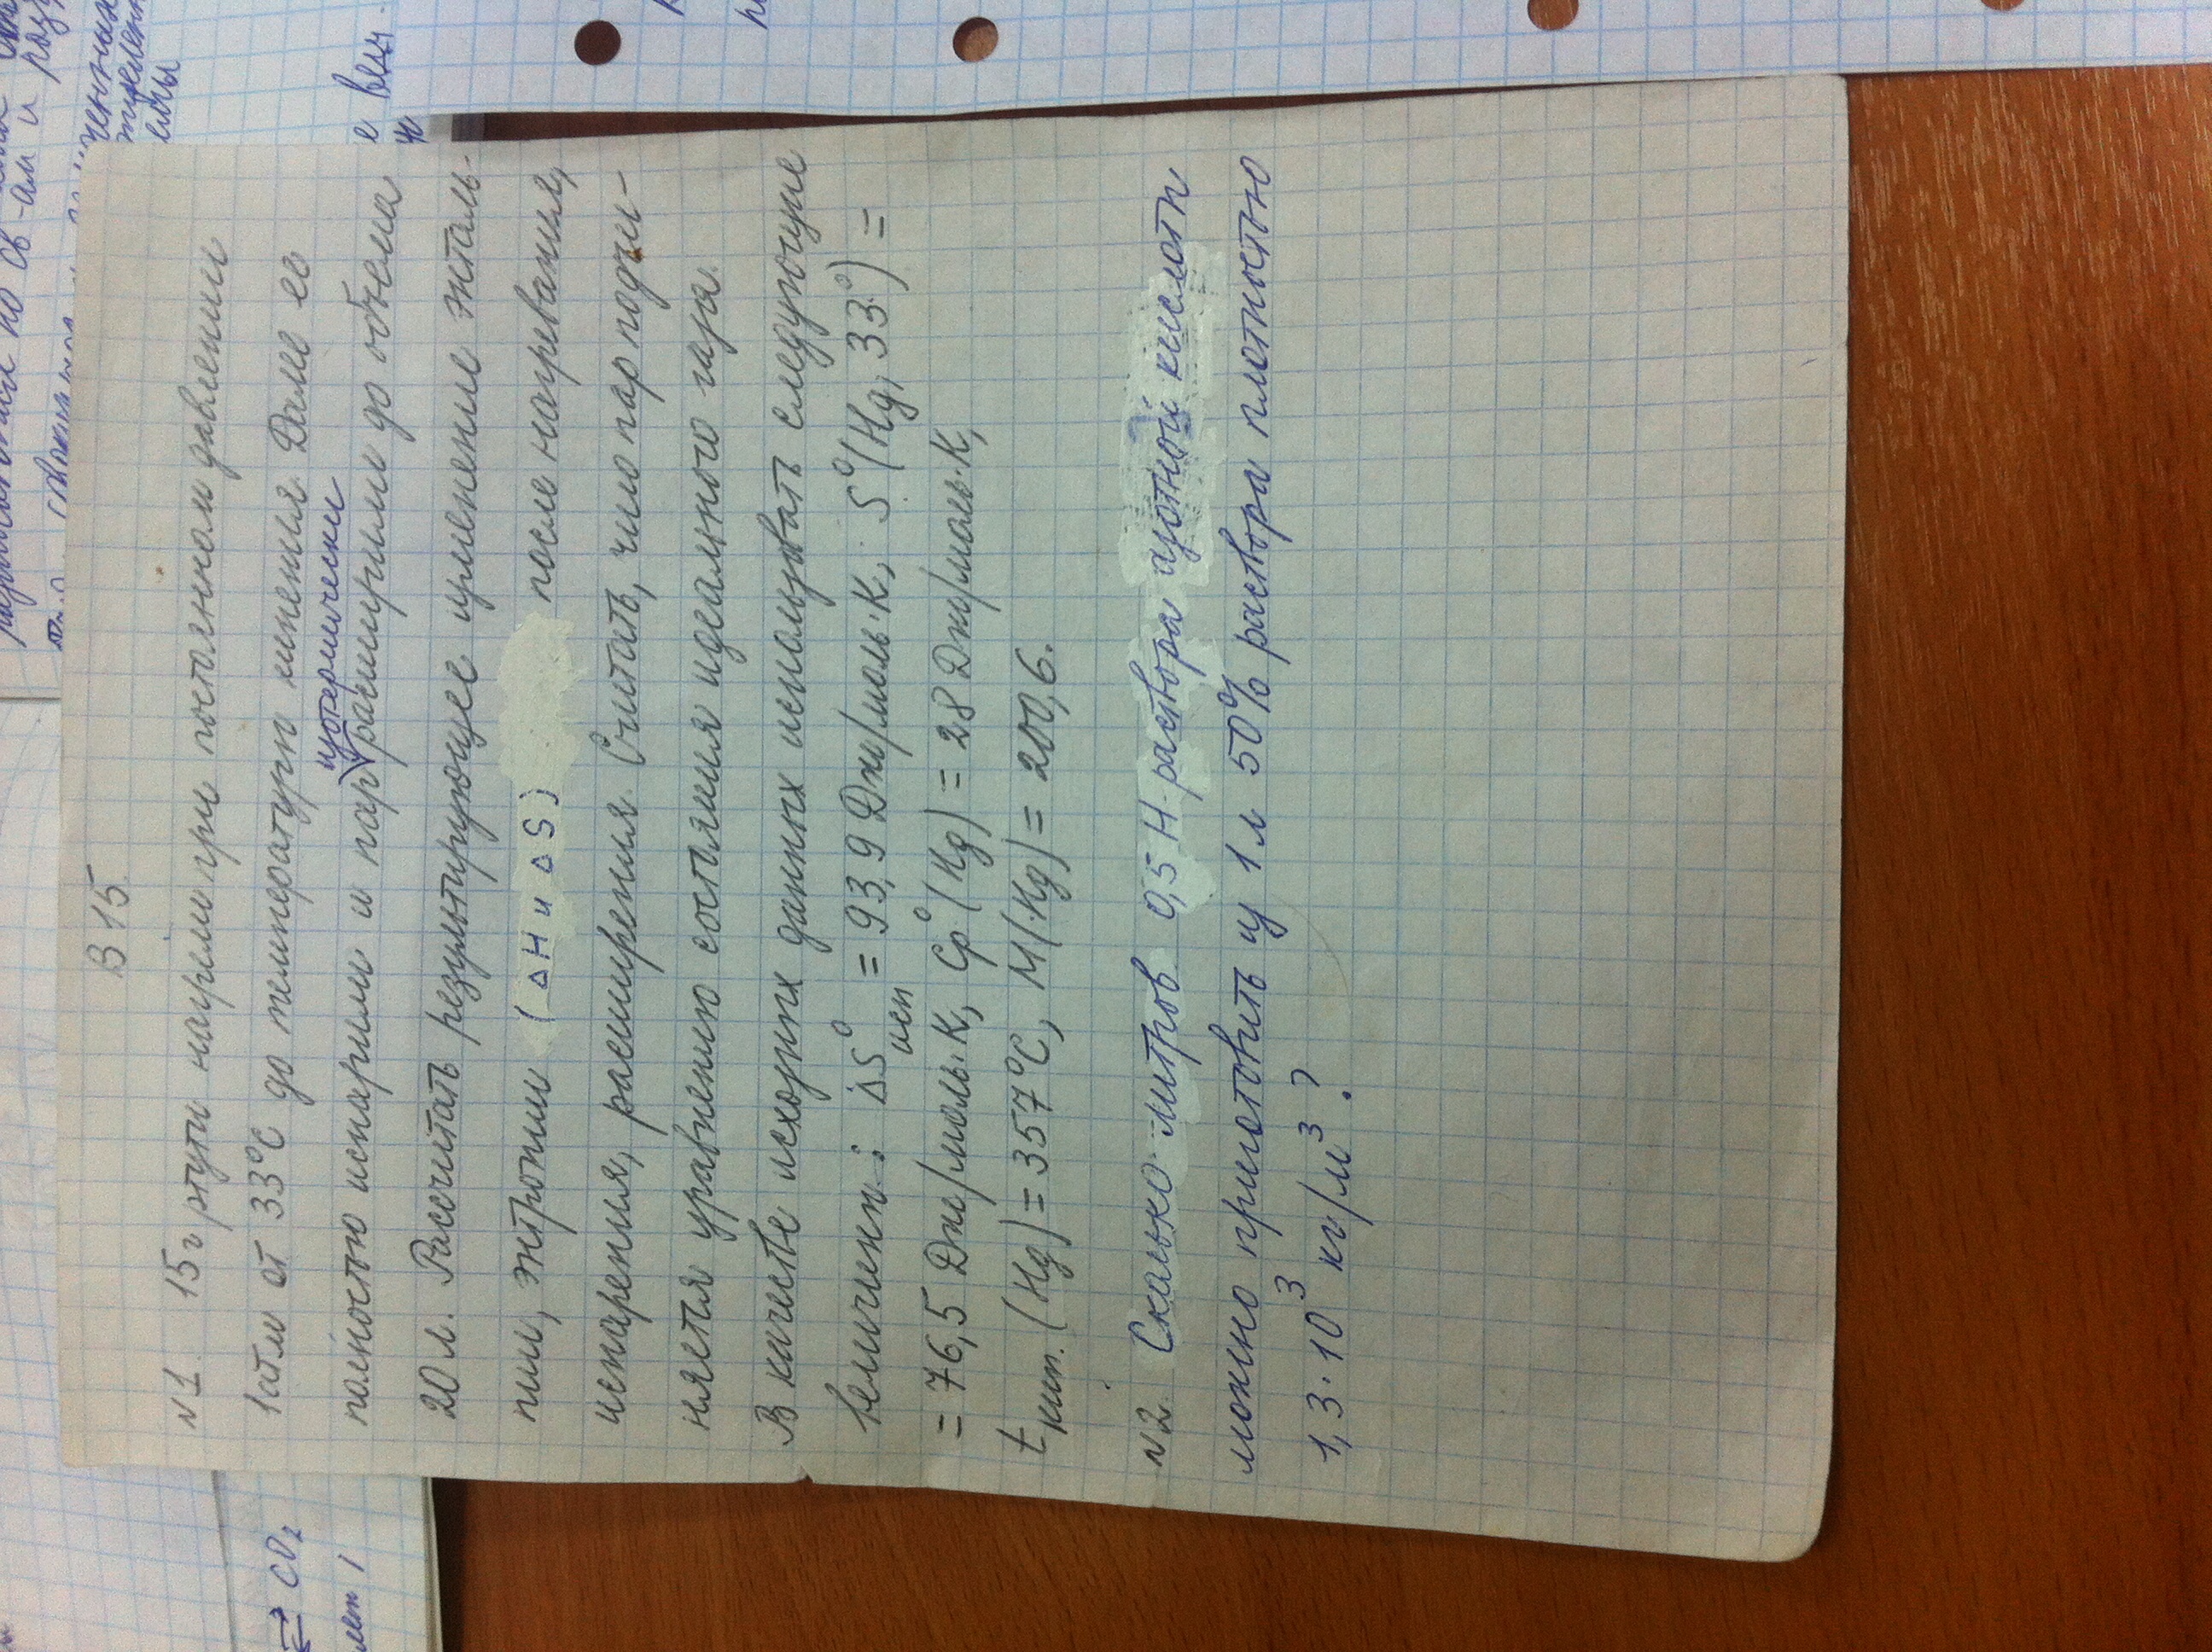 В 15.
N1. 15г ртути нагрели при постоянном давлении
1атм от 33°С до температуры кипения. Далее её
изотермически
полностью испарили и пар расширили до объёма
20 л. Рассчитать результирующее изменение энталь-
пии, энтропии (ΔH и ΔS) после нагревания,
испарения, расширения. Считать, что пар подчи-
няется уравнению состояния идеального газа.
В качестве исходных данных использовать следующие
величины: ΔS°исп = 93,9 Дж/моль·К, S°(Hg, 33°) =
= 76,5 Дж/моль·К, Cp°(Hg) = 28 Дж/моль·К,
tкип.(Hg) = 357°С, М(Hg) = 200,6.
N2. Сколько литров 0,5 Н. раствора азотной кислоты
можно приготовить из 1 л 50% раствора плотностью
1,3·10³ кг/м³?
⇄ CO₂